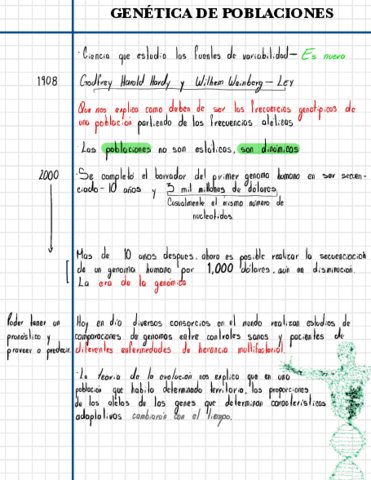 GENÉTICA DE POBLACIONES
· Ciencia que estudia las fuentes de variabilidad – Es nueva
1908
Godfrey Harold Hardy y Wilhem Weinberg – LEY
Que nos explica como deben de ser las frecuencias genotípicas de
una población partiendo de las frecuencias alélicas
Las poblaciones no son estáticas, son dinámicas
2000
· Se completó el borrador del primer genoma humano en ser secuen-
ciado – 10 años y 3 mil millones de dólares
Casualmente el mismo número de
nucleótidos.
Mas de 10 años despues, ahora es posible realizar la secuenciación
de un genoma humano por 1,000 dólares, aún en disminución.
La era de la genómica
Poder tener un
pronóstico y
proveer o predecir
Hoy en día diversos consorcios en el mundo realizan estudios de
comparaciones de genomas entre controles sanos y pacientes de
diferentes enfermedades de herencia multifactorial.
· La teoría de la evolución nos explica que en una
población que habita determinado territorio, las proporciones
de los alelos de los genes que determinan características
adaptativas cambiarán con el tiempo.